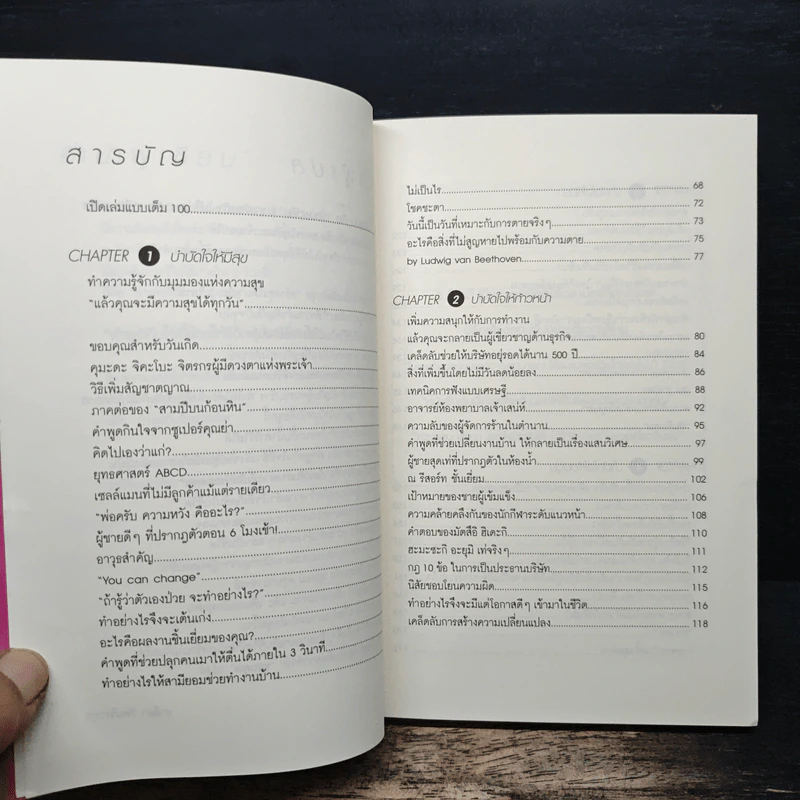 สารบัญ
เปิดเล่มแบบเต็ม 100
CHAPTER 1 บำบัดใจให้มีสุข
ทำความรู้จักกับมุมมองแห่งความสุข
"แล้วคุณจะมีความสุขได้ทุกวัน"
ขอบคุณสำหรับวันเกิด
คุมะดะ จิคะโบะ จิตรกรผู้มีดวงตาแห่งพระเจ้า
วิธีเพิ่มสัญชาตญาณ
ภาคต่อของ "สามปีบนก้อนหิน"
คำพูดกินใจจากซูเปอร์คุณย่า
คิดไปเองว่าแก่?
ยุทธศาสตร์ ABCD
เซลล์แมนที่ไม่มีลูกค้าแม้แต่รายเดียว
"พ่อครับ ความหวัง คืออะไร?"
ผู้ชายดีๆ ที่ปรากฏตัวตอน 6 โมงเช้า!
อาวุธสำคัญ
"You can change"
"ถ้ารู้ว่าตัวเองป่วย จะทำอย่างไร?"
ทำอย่างไรจึงจะเต้นเก่ง
อะไรคือผลงานชิ้นเยี่ยมของคุณ?
คำพูดที่ช่วยปลุกคนเมาให้ตื่นได้ภายใน 3 วินาที
ทำอย่างไรให้สามียอมช่วยทำงานบ้าน
ไม่เป็นไร 68
โชคชะตา 72
วันนี้เป็นวันที่เหมาะกับการตายจริงๆ 73
อะไรคือสิ่งที่ไม่สูญหายไปพร้อมกับความตาย 75
by Ludwig van Beethoven 77
CHAPTER 2 บำบัดใจให้ก้าวหน้า
เพิ่มความสนุกให้กับการทำงาน
แล้วคุณจะกลายเป็นผู้เชี่ยวชาญด้านธุรกิจ 80
เคล็ดลับช่วยให้บริษัทอยู่รอดได้นาน 500 ปี 84
สิ่งที่เพิ่มขึ้นโดยไม่มีวันลดน้อยลง 86
เทคนิคการฟังแบบเศรษฐี 88
อาจารย์ห้องพยาบาลเจ้าเสน่ห์ 92
ความลับของผู้จัดการร้านในตำนาน 95
คำพูดที่ช่วยเปลี่ยนงานบ้าน ให้กลายเป็นเรื่องแสนวิเศษ 97
ผู้ชายสุดเท่ที่ปรากฏตัวในห้องน้ำ 99
ณ รีสอร์ท ชั้นเยี่ยม 102
เป้าหมายของชายผู้เข้มแข็ง 106
ความคล้ายคลึงกันของนักกีฬาระดับแนวหน้า 108
คำตอบของมัตสึอิ ฮิเดะกิ 110
ฮะมะซะกิ อะยุมิ เท่จริงๆ 111
กฎ 10 ข้อ ในการเป็นประธานบริษัท 112
นิสัยชอบโยนความผิด 115
ทำอย่างไรจึงจะมีแต่โอกาสดีๆ เข้ามาในชีวิต 116
เคล็ดลับการสร้างความเปลี่ยนแปลง 118